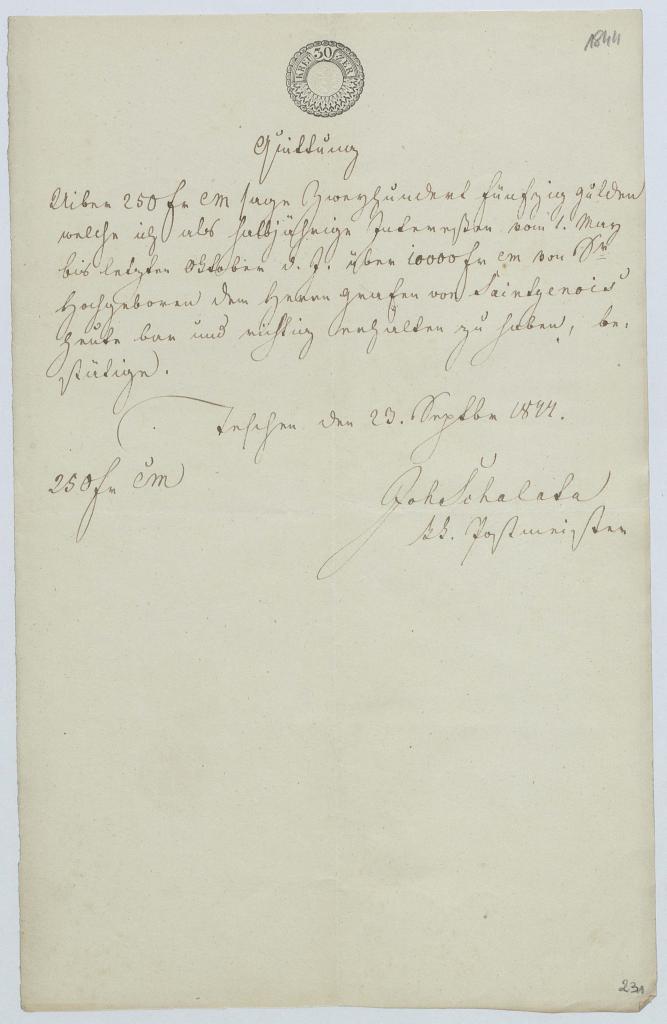 1844
30 KREUZER
Quittung
Uiber 250 fr CM sage Zweyhundert fünfzig gulden
welche ich als halbjährige Interessen vom 1. May
bis letzten Oktober d. J. über 10000 fr CM von Sr
Hochgeboren dem Herrn Grafen von Saintgenois
heute bar und richtig erhalten zu haben, be-
stätige.
Teschen den 23. Septbr 1844.
250 fr CM
Joh Schalata
kk. Postmeister
231